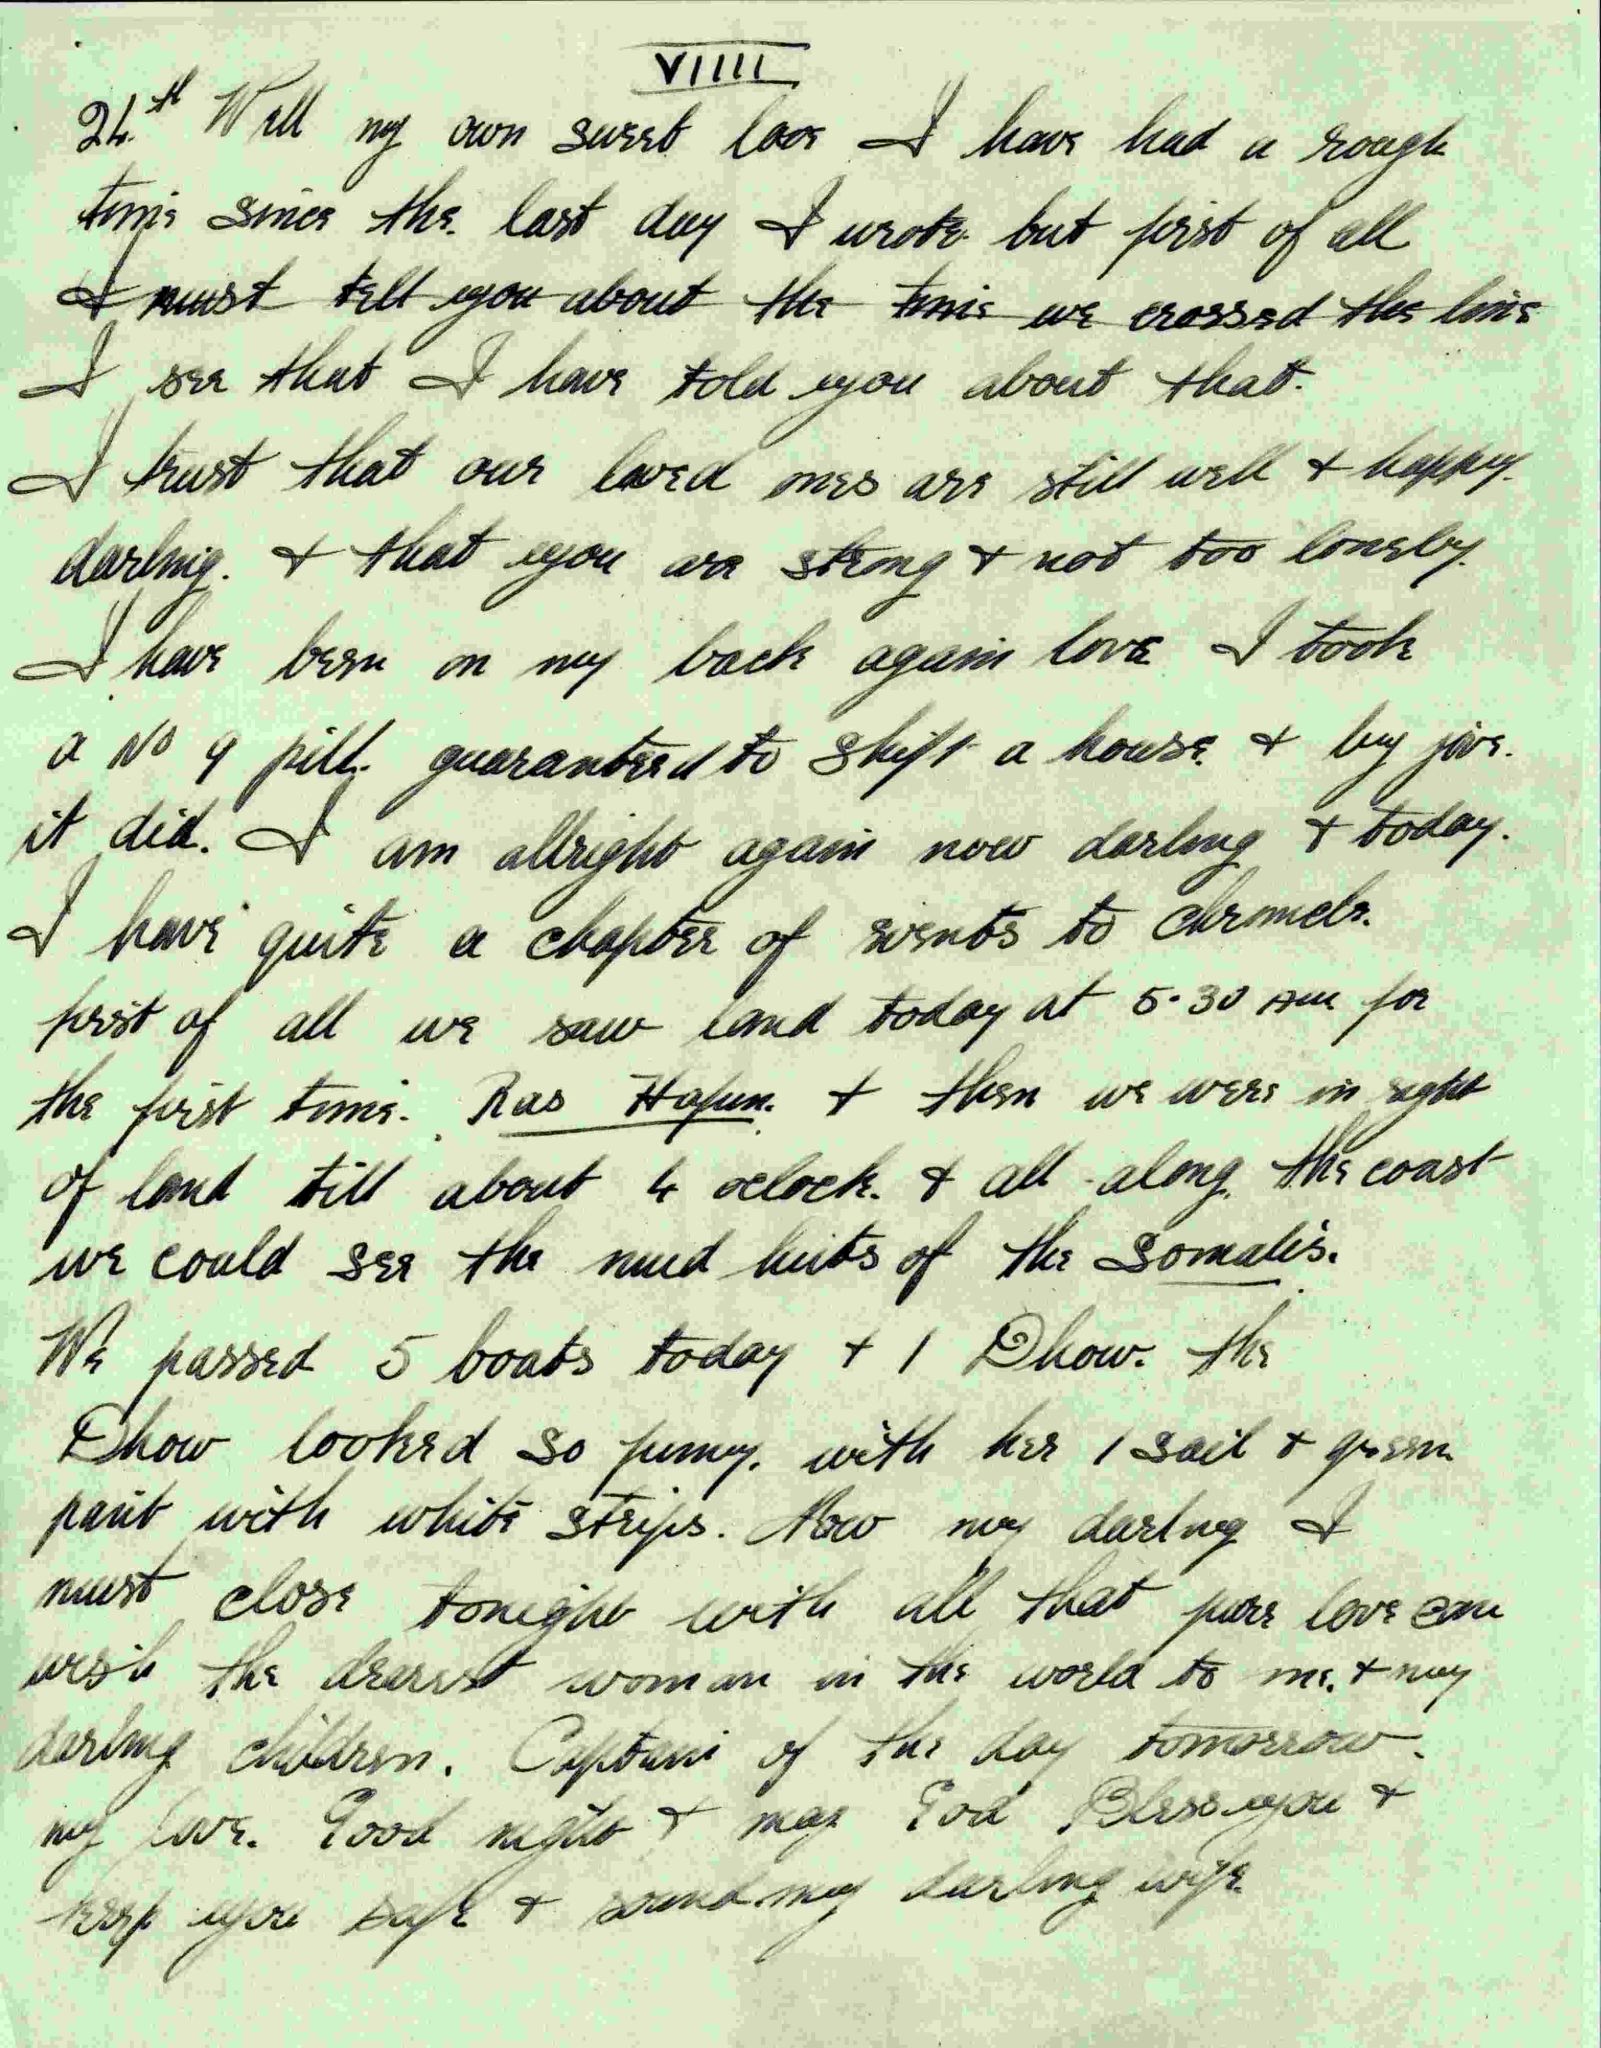 VIIII
24.th Well my own sweet love I have had a rough
time since the last day I wrote but first of all
I must tell you about the time we crossed the line
I see that I have told you about that.
I trust that our loved ones are still well & happy.
darling. & that you are strong & not too lonely.
I have been on my back again love I took
a No 9 pill. guaranteed to shift a house. & by jove.
it did. I am allright again now darling & today.
I have quite a chapter of events to
first of all we saw land today at 5.30 AM for
the first time. Ras Hafun. & then we were in sight
of land till about 4 oclock. & all along. the coast
we could see the mud huts of the Somalis.
We passed 5 boats today + 1 Dhow. the
Dhow looked so funny. with her 1 sail & green
paint with white strips. Now my darling I
must close tonight with all that pure love can
wish the dearest woman in the world to me. & my
darling children. Captain of the day tomorrow.
my love. Good night & may God Bless you &
keep you safe & sound my darling wife.